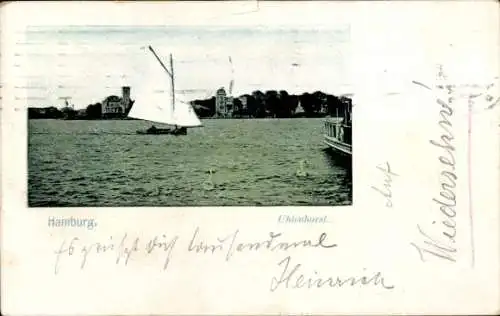 Hamburg.
Uhlenhorst.
Es grüßt dich tausendmal
Heinrich
Auf
Wiedersehn!